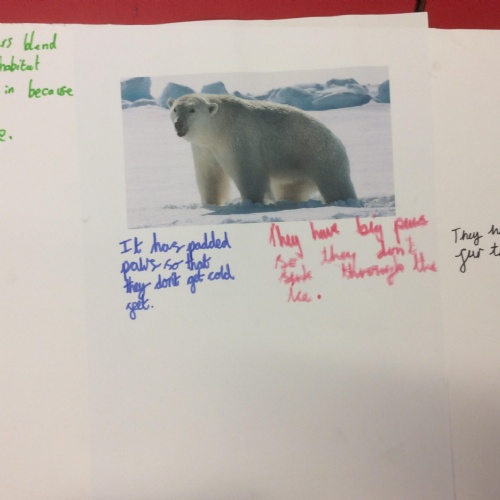 blend
habitat
in because
e.
It has padded
paws so that
they dont get cold
feet.
They have big paws
so they don't
sink through the
Ice.
They h
fur t